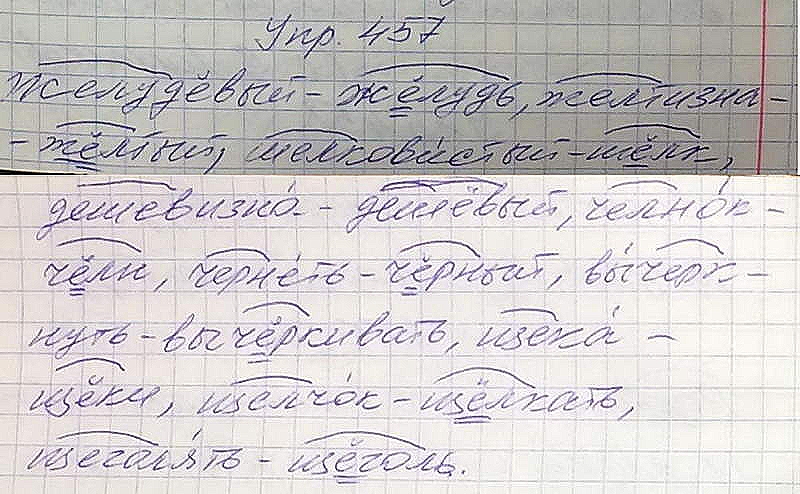 Упр. 457
Желудёвый - жёлудь, желтизна -
- жёлтый, шелкови́стый - шёлк,
дешевизна́ - дешёвый, челно́к -
чёлн, черне́ть - чёрный, вы́черк-
нуть - вычёркивать, щека́ -
щёки, щелчо́к - щёлкать,
щеголя́ть - щёголь.